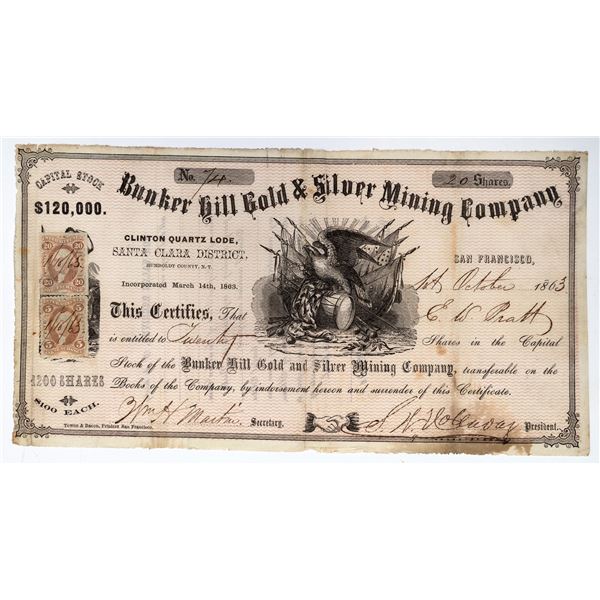 No. 74.
20 Shares.
CAPITAL STOCK
$120,000.
Bunker Hill Gold & Silver Mining Company
CLINTON QUARTZ LODE,
SANTA CLARA DISTRICT,
HUMBOLDT COUNTY, N.T.
Incorporated March 14th, 1863.
SAN FRANCISCO,
1st October 1863
This Certifies, That E. W. Pratt
is entitled to Twenty Shares in the Capital
Stock of the Bunker Hill Gold and Silver Mining Company, transferable on the
Books of the Company, by indorsement hereon and surrender of this Certificate.
20 20
20 20
5 5
5 5
1200 SHARES
$100 EACH.
Wm H Martin Secretary.
President.
Towne & Bacon, Printers San Francisco.